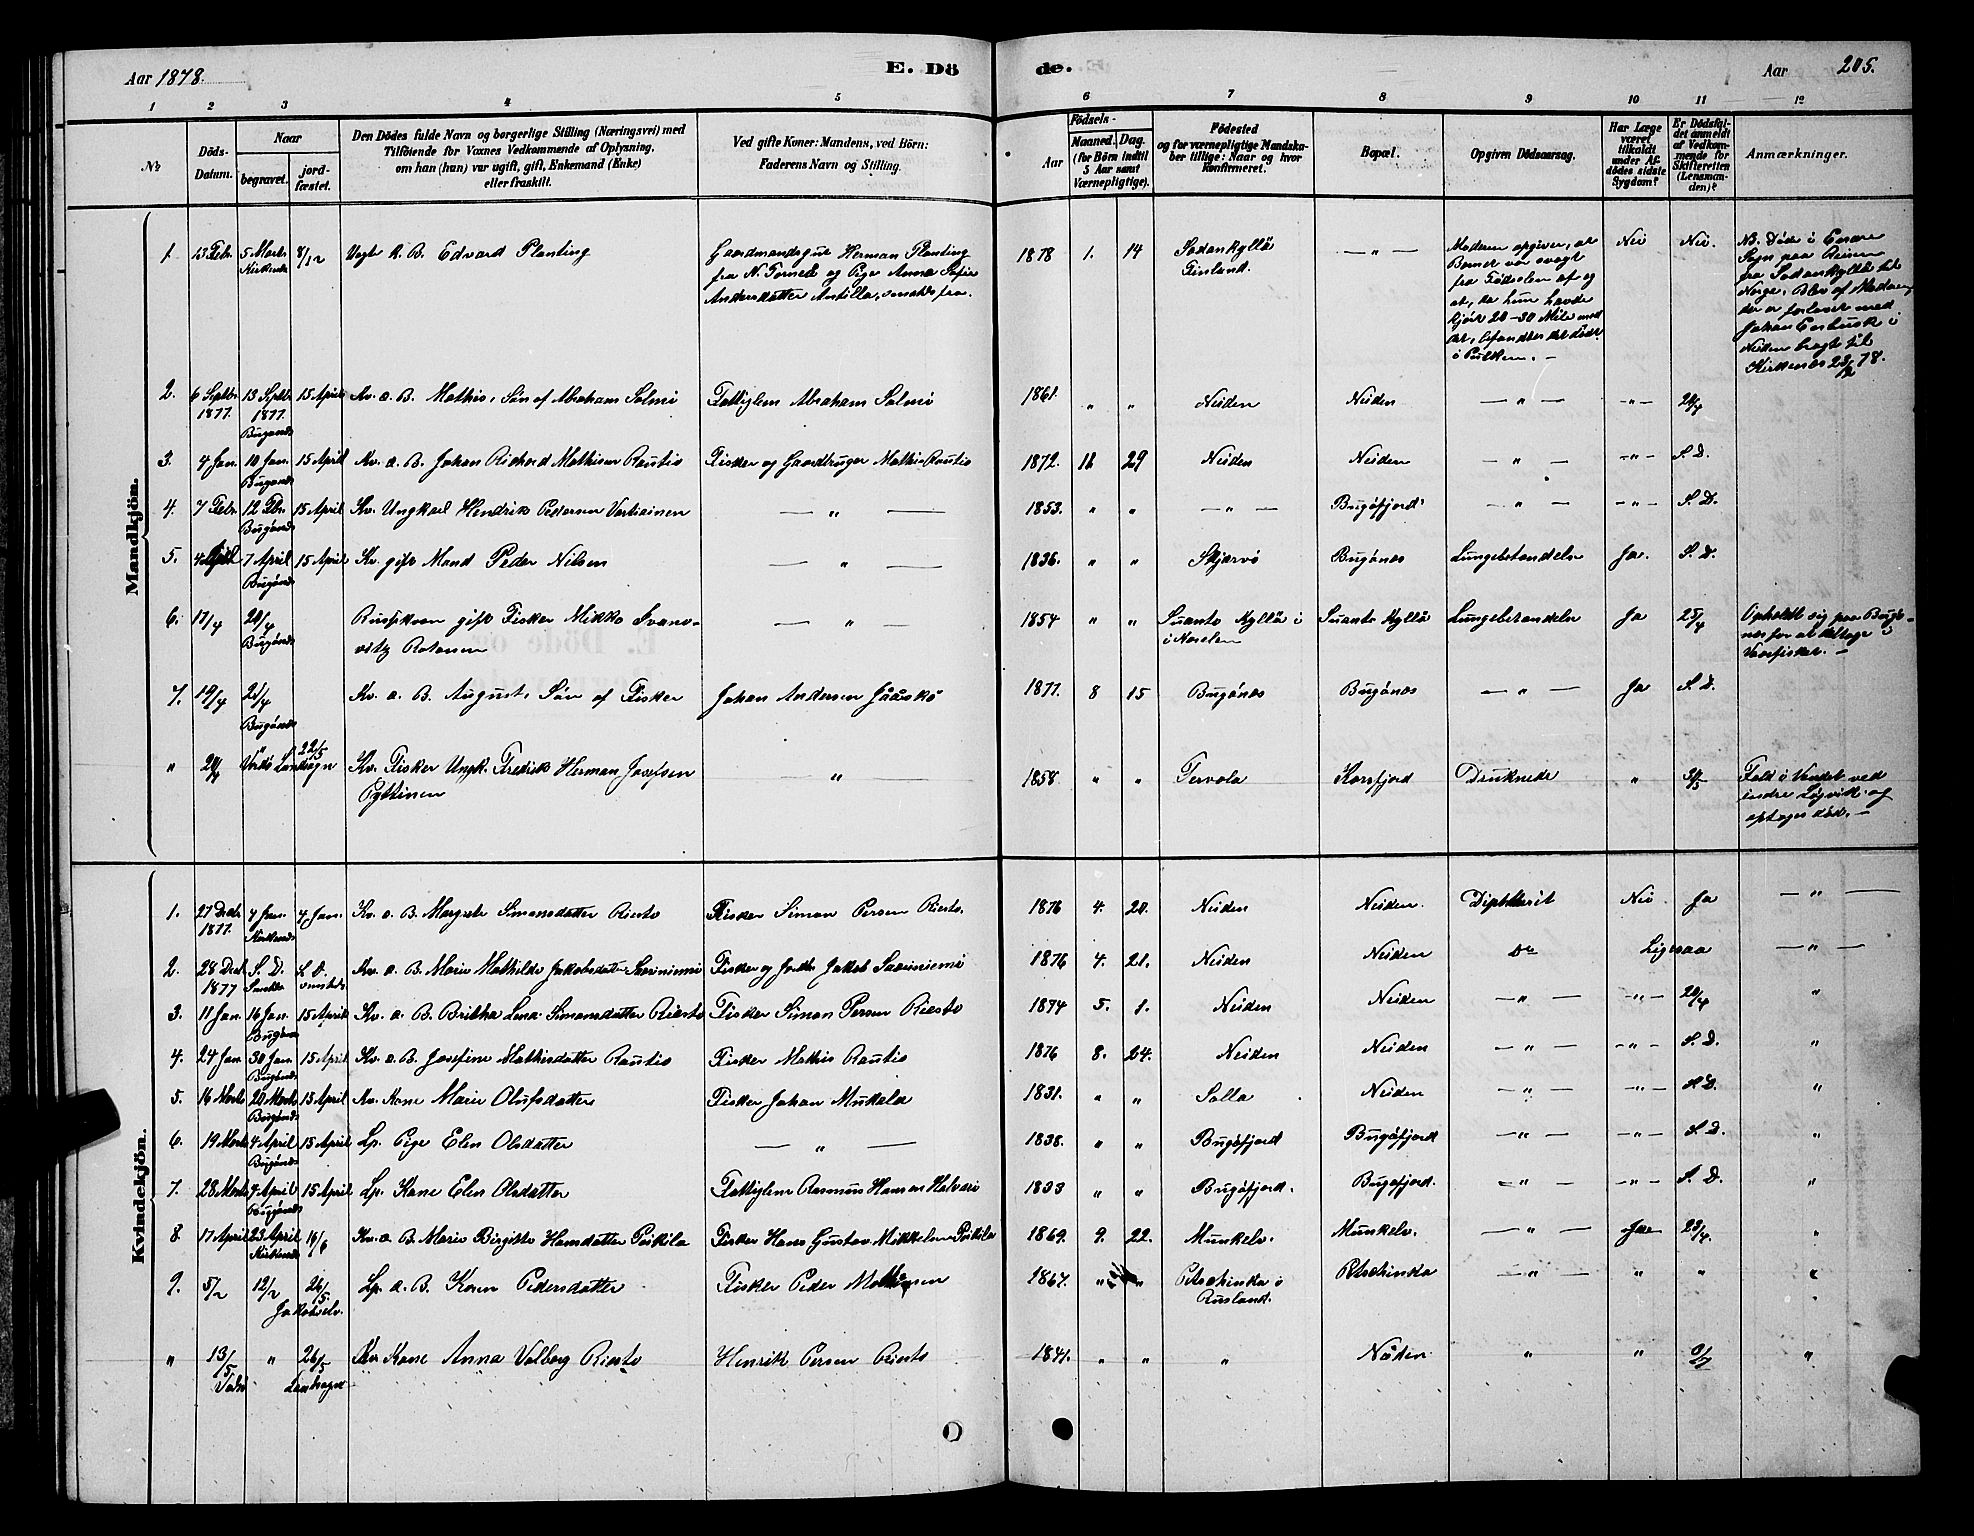 Aar 1878.
E. Dö
de.
Aar 205.
1 2 3 4 5 6 7 8 9 10 11 12
№
Döds-
Datum.
Naar
begravet.
jord-
fæstet.
Den Dödes fulde Navn og borgerlige Stilling (Næringsvei) med
Tilföiende for Voxnes Vedkommende af Oplysning,
om han (hun) var ugift, gift, Enkemand (Enke)
eller fraskilt.
Ved gifte Koner: Mandens, ved Börn:
Faderens Navn og Stilling.
Födsels-
Aar
Maaned. Dag.
(for Börn indtil
5 Aar samt
Værnepligtige).
Födested
og for værnepligtige Mandska-
ber tillige: Naar og hvor
konfirmeret.
Bopæl.
Opgiven Dödsaarsag.
Har Læge
været
tilkaldt
under Af-
dödes sidste
Sygdom?
Er Dödsfal-
det anmeldt
af Vedkom-
mende for
Skifteretten
(Lensman-
den)?
Anmærkninger.
Mandkjön.
1. 13 Febr. 5 Marts 8/12 Vægt. K. B. Edvard Planting
Gaardmandsgut Herman Planting
fra N. Torneå og Pige Anna Sofie
Andersdatter Antilla,
1878 1. 14 Sodankyllä
Finland.
— " —
Moderen opgiver, at
Barnet var svagt
fra Fødselen af og
at, da hun havde
kjørt 20-30 Mile med
det, befandtes det dødt
i Pulken. —
Nei Nei.
NB. Døde i Enare
Sogn paa Reisen
fra Sodankyllä til
Norge. Blev af Moderen
der er forlovet med
Johan
Neiden bragt til
Kirkenæs 23/2 78.
2. 6 Septbr. 1877 13 Septbr. 1877. Bugønæs 15 April Kv. a. B. Mathis, Søn af Abraham Salmi Fattiglem Abraham Salmi 1861. " " Neiden Neiden — " — - " - 24/4
3. 4 Jan. 10 Jan. Bugønæs 15 April Kv. a. B. Johan Richard Mathisen Rautio Fisker og Gaardbruger Mathis Rautio 1872. 11 29 Neiden Neiden — " — - " - S. D.
4. 7 Febr. 12 Febr. Bugønæs 15 April Kv. Ungkarl Hendrik Pedersen Vartiainen — " — 1853. " " — " — Bugøfjord — " — - " - S. D.
5. 4 April 7 April Bugønæs 15 April Kv. gift Mand Peder Nilsen — " — 1836. " " Skjervø Bugønæs Lungebetændelse Ja. S. D.
6. 17/4 24/4 Bugønæs
Russkvæn gift Fisker Mikko Ivano-
vitz Rotonen
— " — 1854 " " Suanto Kyllä i
Suanto Kyllä Lungebetændelse Ja 25/4
Opholdt sig paa Bugø-
næs for at deltage i
Vaarfisket. —
7. 19/4 24/4 Bugønæs Kv. a. B. August, Søn af Fisker Johan Andersen Jääskö 1877. 8 15 Bugønæs Bugønæs — " — Ja S. D.
" 24/4 Vadsø Landsogn 22/5
Kv. Fisker Ungk. Fredrik Herman Josefsen
Pyttinen
— " — 1858. " " Tervola Korsfjord Druknede " 30/5
Faldt i Vandet ved
indre Løgvik og
optoges død. —
Kvindekjön.
1. 27 Decbr. 1877. 4 Jan. Kirkenæs 4 Jan. Kv. a. B. Margrete Simonsdatter Riesto Fisker Simon Persen Riesto. 1876 4. 20. Neiden Neiden. Diphtherit Nei Ja — " —
2. 28 Decbr. 1877 S. D. S. D. Kv. a. B. Marie Mathilde Jakobsdatter Saariniemi Fisker og Jordbr. Jakob Saariniemi 1876 4. 21. Neiden Neiden Do Ligesaa — " —
3. 11 Jan. 16 Jan. Bugønæs 15 April Kv. a. B. Britha Lena Simonsdatter Riesto Fisker Simon Persen Riesto 1874 5. 1. Neiden Neiden — " — - " - 24/4 "
4. 24 Jan. 30 Jan. Bugønæs 15 April Kv. a. B. Josefine Mathisdatter Rautio Fisker Mathis Rautio 1876 8. 24. Neiden Neiden — " — - " - S. D. "
5. 16 Marts 20 Marts Bugønæs 15 April Kv. Kone Marie Olufsdatter Fisker Johan Mukala 1831. " " Salla Neiden — " — - " - S. D. "
6. 19 Marts 4 April Bugønæs 15 April Lp. Pige Elen Olsdatter — " — 1838. " " Bugøfjord Bugøfjord — " — - " - S. D. "
7. 28 Marts 4 April Bugønæs 15 April Lp. Kone Elen Olsdatter Fattiglem Rasmus Hansen Halvari 1833 " " Bugøfjord. Bugøfjord. — " — - " - S. D. "
8. 17 April 23 April Kirkenæs 16/6 Kv. a. B. Marie Birgitte Hansdatter Peikila Fisker Hans Gustav Mikkelsen Peikila 1869. 9. 22. Munkelv. Munkelv. — " — Ja 23/4. "
9. 5/2 12/2 26/5. Jakobselv. Lp. a. B. Karen Pedersdatter Fisker Peder Mathisen 1867. " " Petschinka i
Rusland.
Petschinka — " — " " "
" 13/5 " 26/5 Vadsø Landsogn Kv. Kone Anna Valborg Riesto Henrik Persen Riesto 1841. " " " Neiden " " 9/7 "